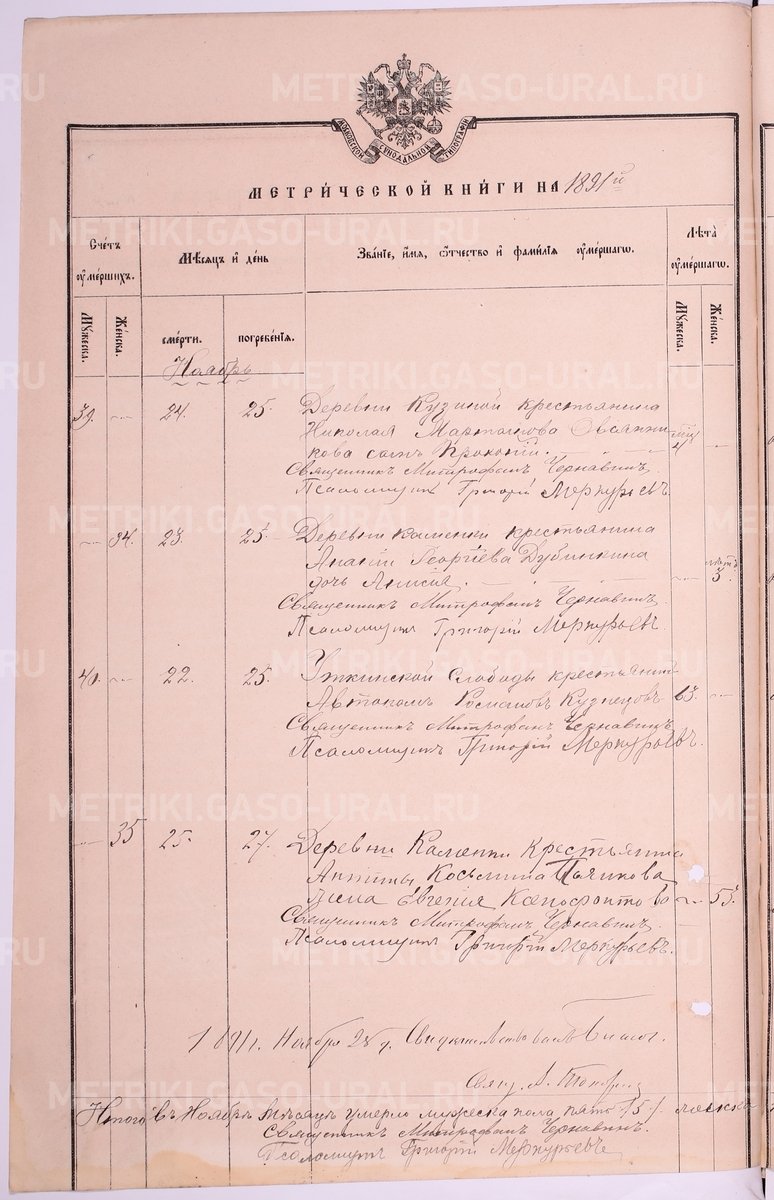 МОСКОВСКОЙ СѴНОДАЛЬНОЙ ТИПОГРАФІИ
МЕТРИЧЕСКОЙ КНИГИ НА 1891й
Счетъ умершихъ.
Мѣсяцъ и день
Званіе, имя, отчество и фамилія умершаго.
Лѣта умершаго.
Мужеска.
Женска.
смерти.
погребенія.
Мужеска.
Женска.
Ноябрь
39. 24. 25. Деревни Кузиной крестьянина
Николая Мартынова Овсянни
кова сынъ Прокопій. 4
Священникъ Митрофанъ Чернавинъ.
Псаломщикъ Григорій Меркурьевъ.
34. 23. 25. Деревни Каменки крестьянина
Ананіи Георгіева Дубинкина
дочь Анисія. лѣтъ 3.
Священникъ Митрофанъ Чернавинъ.
Псаломщикъ Григорій Меркурьевъ.
40. 22. 25. Уткинской Слободы крестьянинъ
Автономъ Романовъ Кузнецовъ 63.
Священникъ Митрофанъ Чернавинъ.
Псаломщикъ Григорій Меркурьевъ.
35 25. 27. Деревни Каменки крестьянина
Антипы Косьмина Пьянкова
жена Евгенія Ксенофонтова 55.
Священникъ Митрофанъ Чернавинъ.
Псаломщикъ Григорій Меркурьевъ.
1891 г. Ноября 28 д. Свидѣтельствовалъ Благоч.
Свящ.
Итого въ Ноябрѣ мѣсяцѣ умерло мужеска пола пять /5/. женска
Священникъ Митрофанъ Чернавинъ.
Псаломщикъ Григорій Меркурьевъ
METRIKI.GASO-URAL.RU